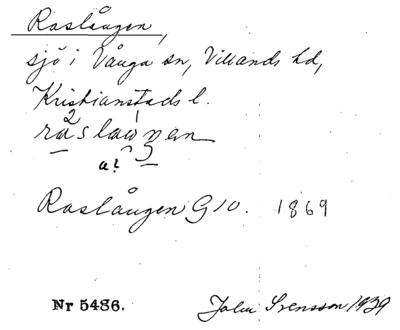 Raslången,
sjö i Vånga sn, Villands hd,
Kristianstads l.
Raslången G10. 1869
Nr 5486. John Svensson 1929